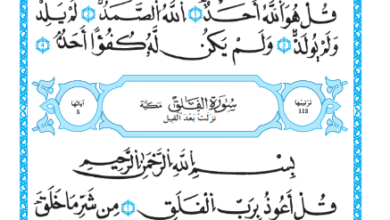 قُلْ هُوَ ٱللَّهُ أَحَدٌ ١ ٱللَّهُ ٱلصَّمَدُ ٢ لَمْ يَلِدْ
وَلَمْ يُولَدْ ٣ وَلَمْ يَكُن لَّهُۥ كُفُوًا أَحَدٌۢ ٤
ترتيبها ١١٣
سُورَةُ الفَلَقِ مَكيّة
نزلت بعد الفيل
آياتها ٥
بِسْمِ ٱللَّهِ ٱلرَّحْمَٰنِ ٱلرَّحِيمِ
قُلْ أَعُوذُ بِرَبِّ ٱلْفَلَقِ ١ مِن شَرِّ مَا خَلَقَ